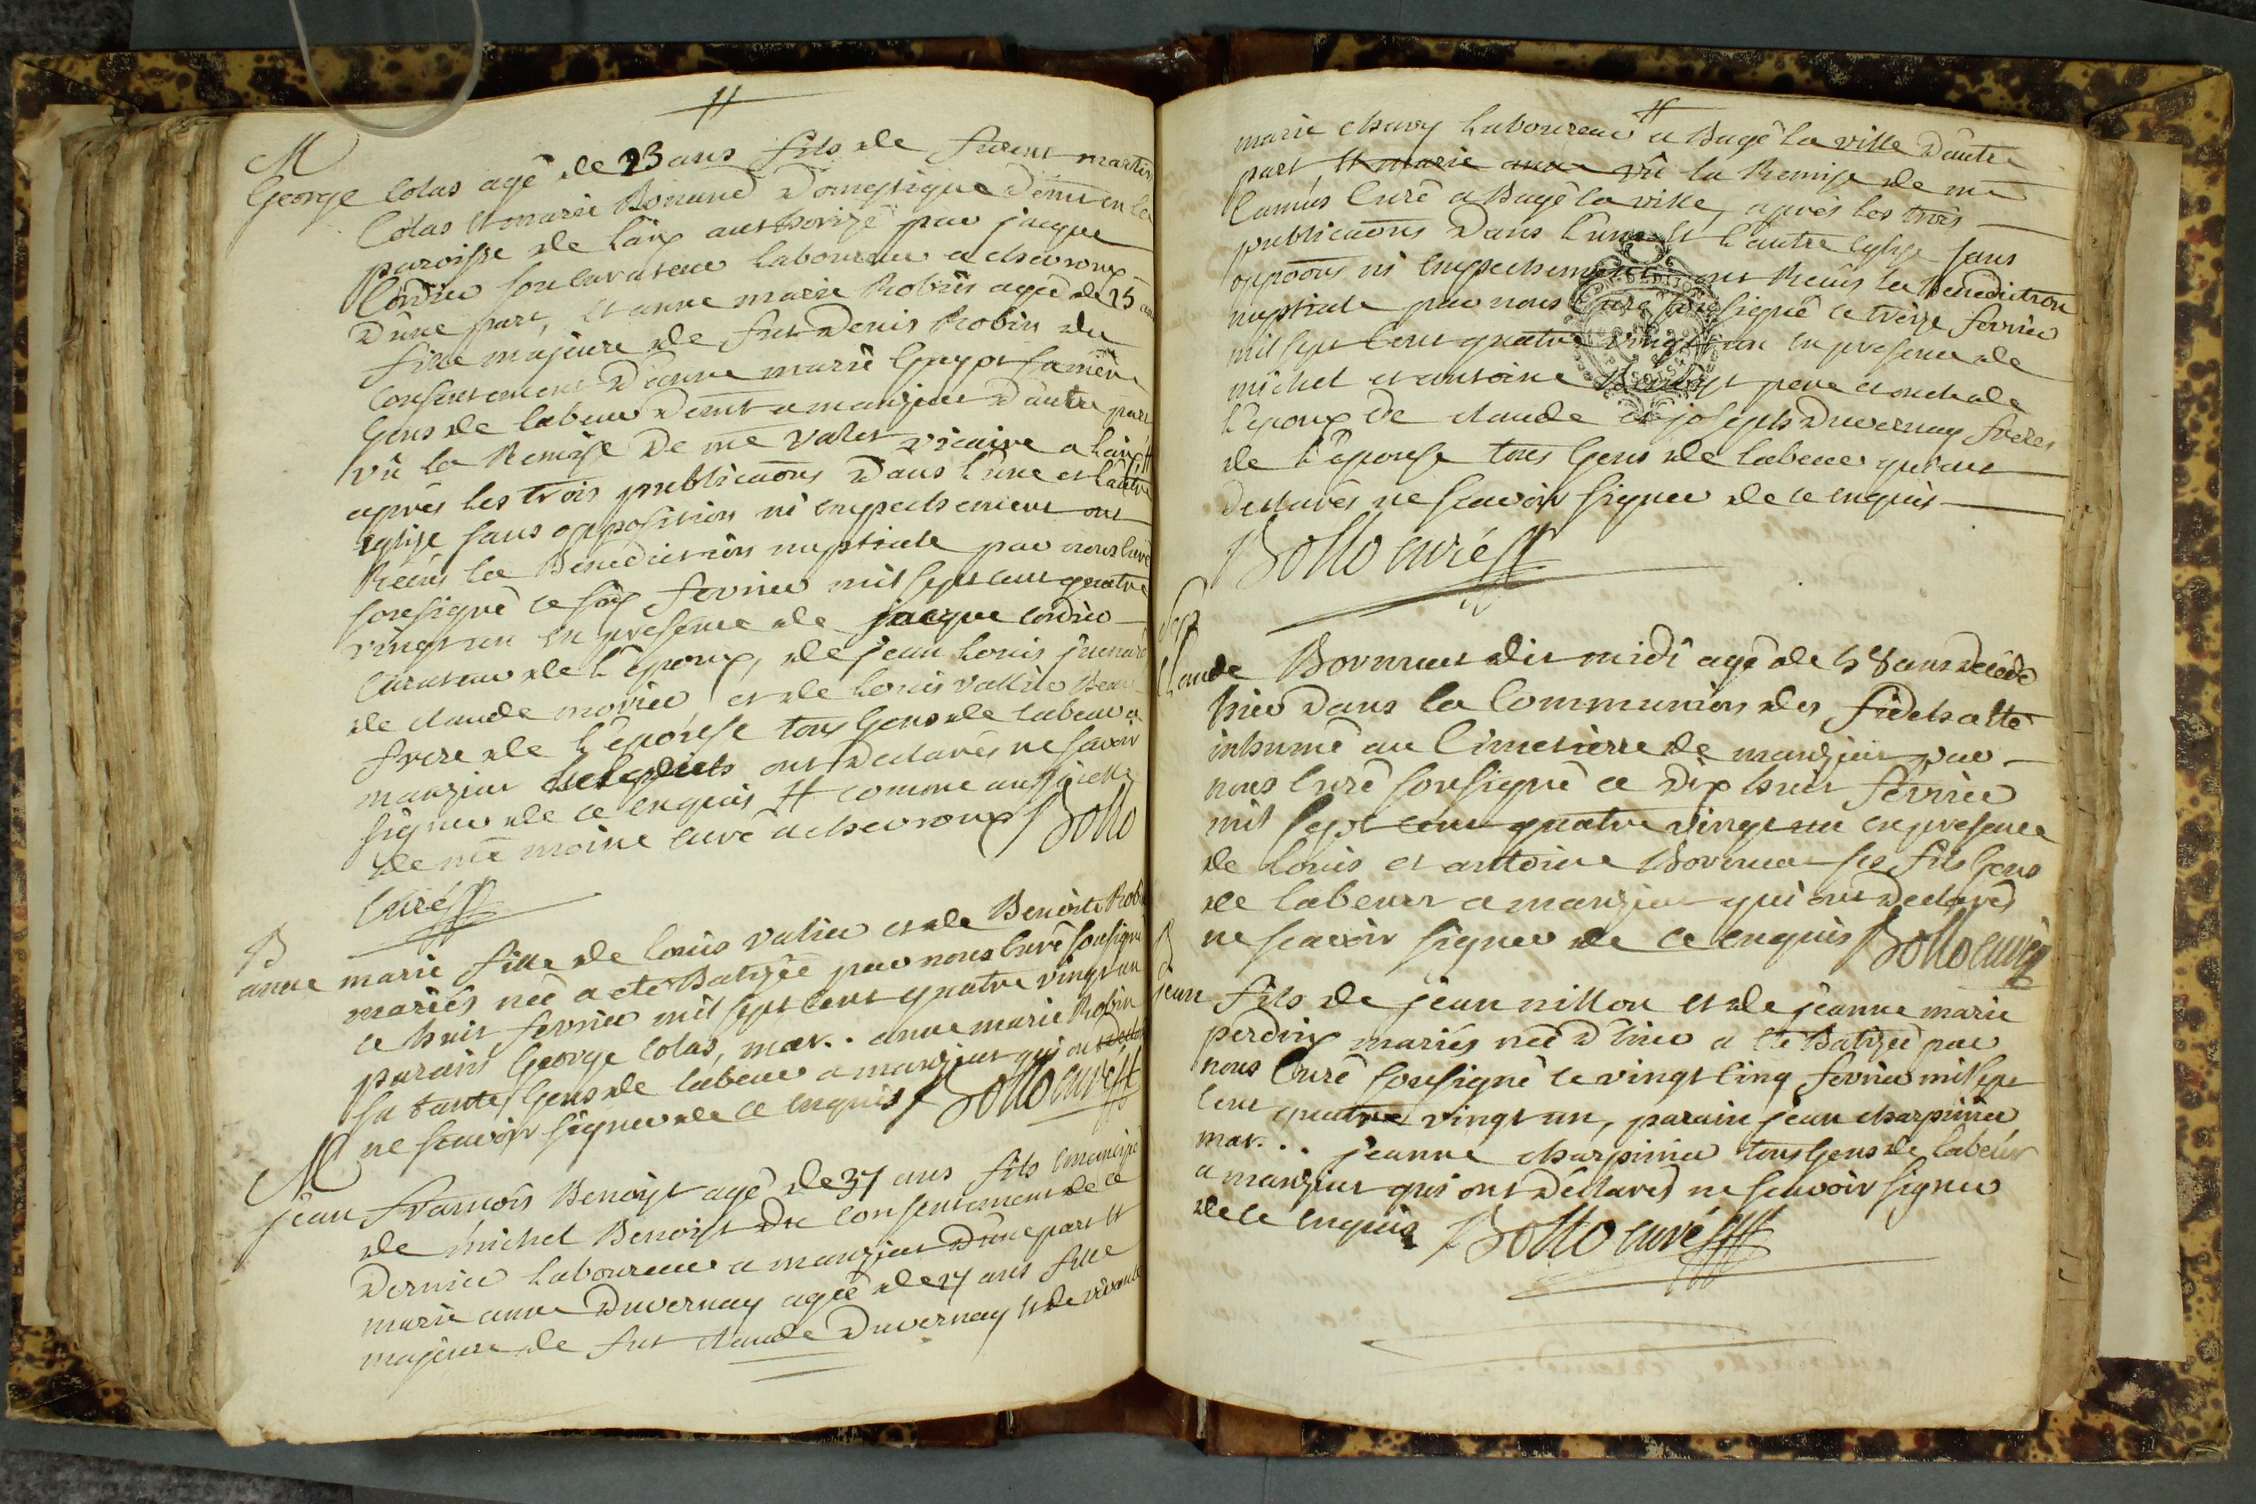 M
George Colas agé de 23 ans fils de furent martin
Colas et marie Bonand Domestique demt en la
paroisse de laix authorizé par jacque
Cordier son curateur laboureur a chevroux
D'une part, et anne marie Robin agée de 25 ans
fille majeure de fut Denis Robin du
Consentement d'anne marie Guypt sa mere
Gens de labeur demt a manziat d'autre part
vû la Remise de mre valet vicaire a laix, et
après les trois publicaõns Dans l'une et l'autre
eglise sans opposition ni empechement ont
Reçus la Bénédiction nuptiale par nous Curé
sousigné ce six fevrier mil sept cent quatre
vingt un en presence de jacque Cordier
Curateur de l'epoux, de jean Louis
de claude morier et de Louis vallier Beau
frere de l'epouse tous Gens de labeur a
manziat lesquels ont Declarés ne savoir
signer de ce enquis # comme aussi celle
de mre moine curé a chevroux Bollo
Curé
B
anne marie fille de Louis valier et de Benoite Robin
mariés née a eté Batizée par nous Curé sousigné
ce huit fevrier mil sept cent quatre vingt un
parain George Colas, mar.. anne marie Robin
sa tante Gens de labeur a manziat qui on declaré
ne scavoir signer de ce enquis Bollo curé
M
jean francois Benoist agé de 37 ans fils emancipé
de michel Benoist Du consentement de ce
Dernier laboureur a manziat D'une part et
marie anne Duvernay agée de 27 ans fille
majeure de fut claude Duvernay et de vivante
marie chavy laboureur a Bagé la ville D'autre
part, et marie anne vû la Remise de mre
Camus Curé a Bagé la ville, après les trois
publicaõns Dans l'une et l'autre eglise sans
oppoõns ni empechement ont Reçus la Bénédiction
nuptiale par nous Curé sousigné ce treize fevrier
mil sept cent quatre vingt un en presence de
michel et antoine Benoist pere et oncle de
l'epoux De claude et joseph Duvernay freres
de l'epouse tous Gens de labeur qui ont
declarés ne scavoir signer de ce enquis
Bollo curé
Sep
Claude Bornuat dit midi agé de 58 ans decédé
hier Dans la Communion des fidels a été
inhumé au Cimetierre de manziat par
nous Curé sousigné ce Dix huit fevrier
mil sept cent quatre vingt un en presence
de Louis et antoine Bornuat ses fils Gens
de labeur a manziat qui ont Declarés
ne scavoir signer de ce enquis Bollo curé
B
jean fils de jean nillon et de jeanne marie
perdrix mariés né D'hier a eté Batizé par
nous Curé sousigné le vingt Cinq fevrier mil sept
Cent quatre vingt un, parain jean charpinier
mar... jeanne charpinier tous Gens de labeur
a manziat qui ont Déclarés ne scavoir signer
de ce enquis Bollo curé